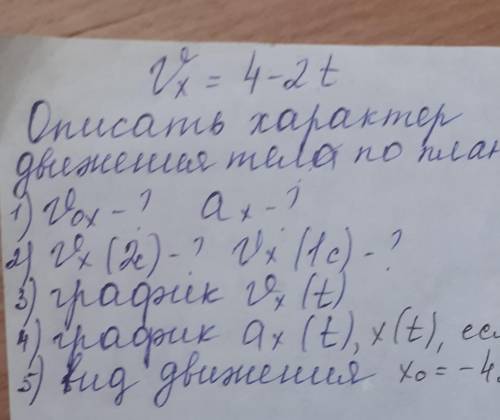 Vx = 4 - 2t
Описать характер
движения тела по план
1) V0x - ? ax - ?
2) Vx (2с) - ? Vx (1с) - ?
3) график Vx (t)
4) график ax (t), x(t), есл
5) вид движения x0 = -4